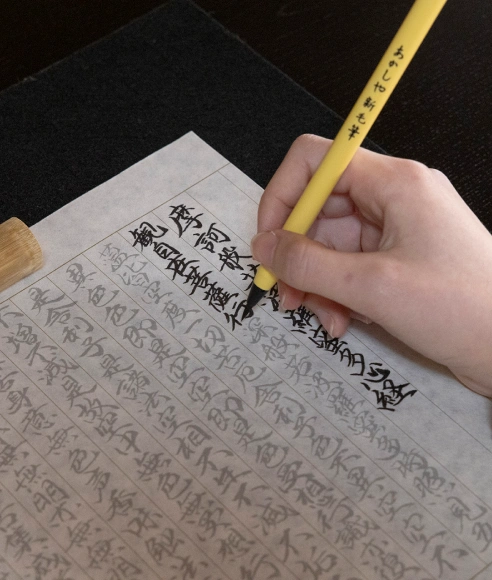 あかしや新毛筆
摩訶般若羅蜜多心経
観自在菩薩行深般若波羅蜜多時照見五
蘊皆空度一切苦厄舎利子色不異空空不
異色色即是空空即是色受想行識亦
是舎利子是諸法空相不生不滅不
不増不減是故空中無色無受想行
舌身意無色声香味触法
無無明亦無無明